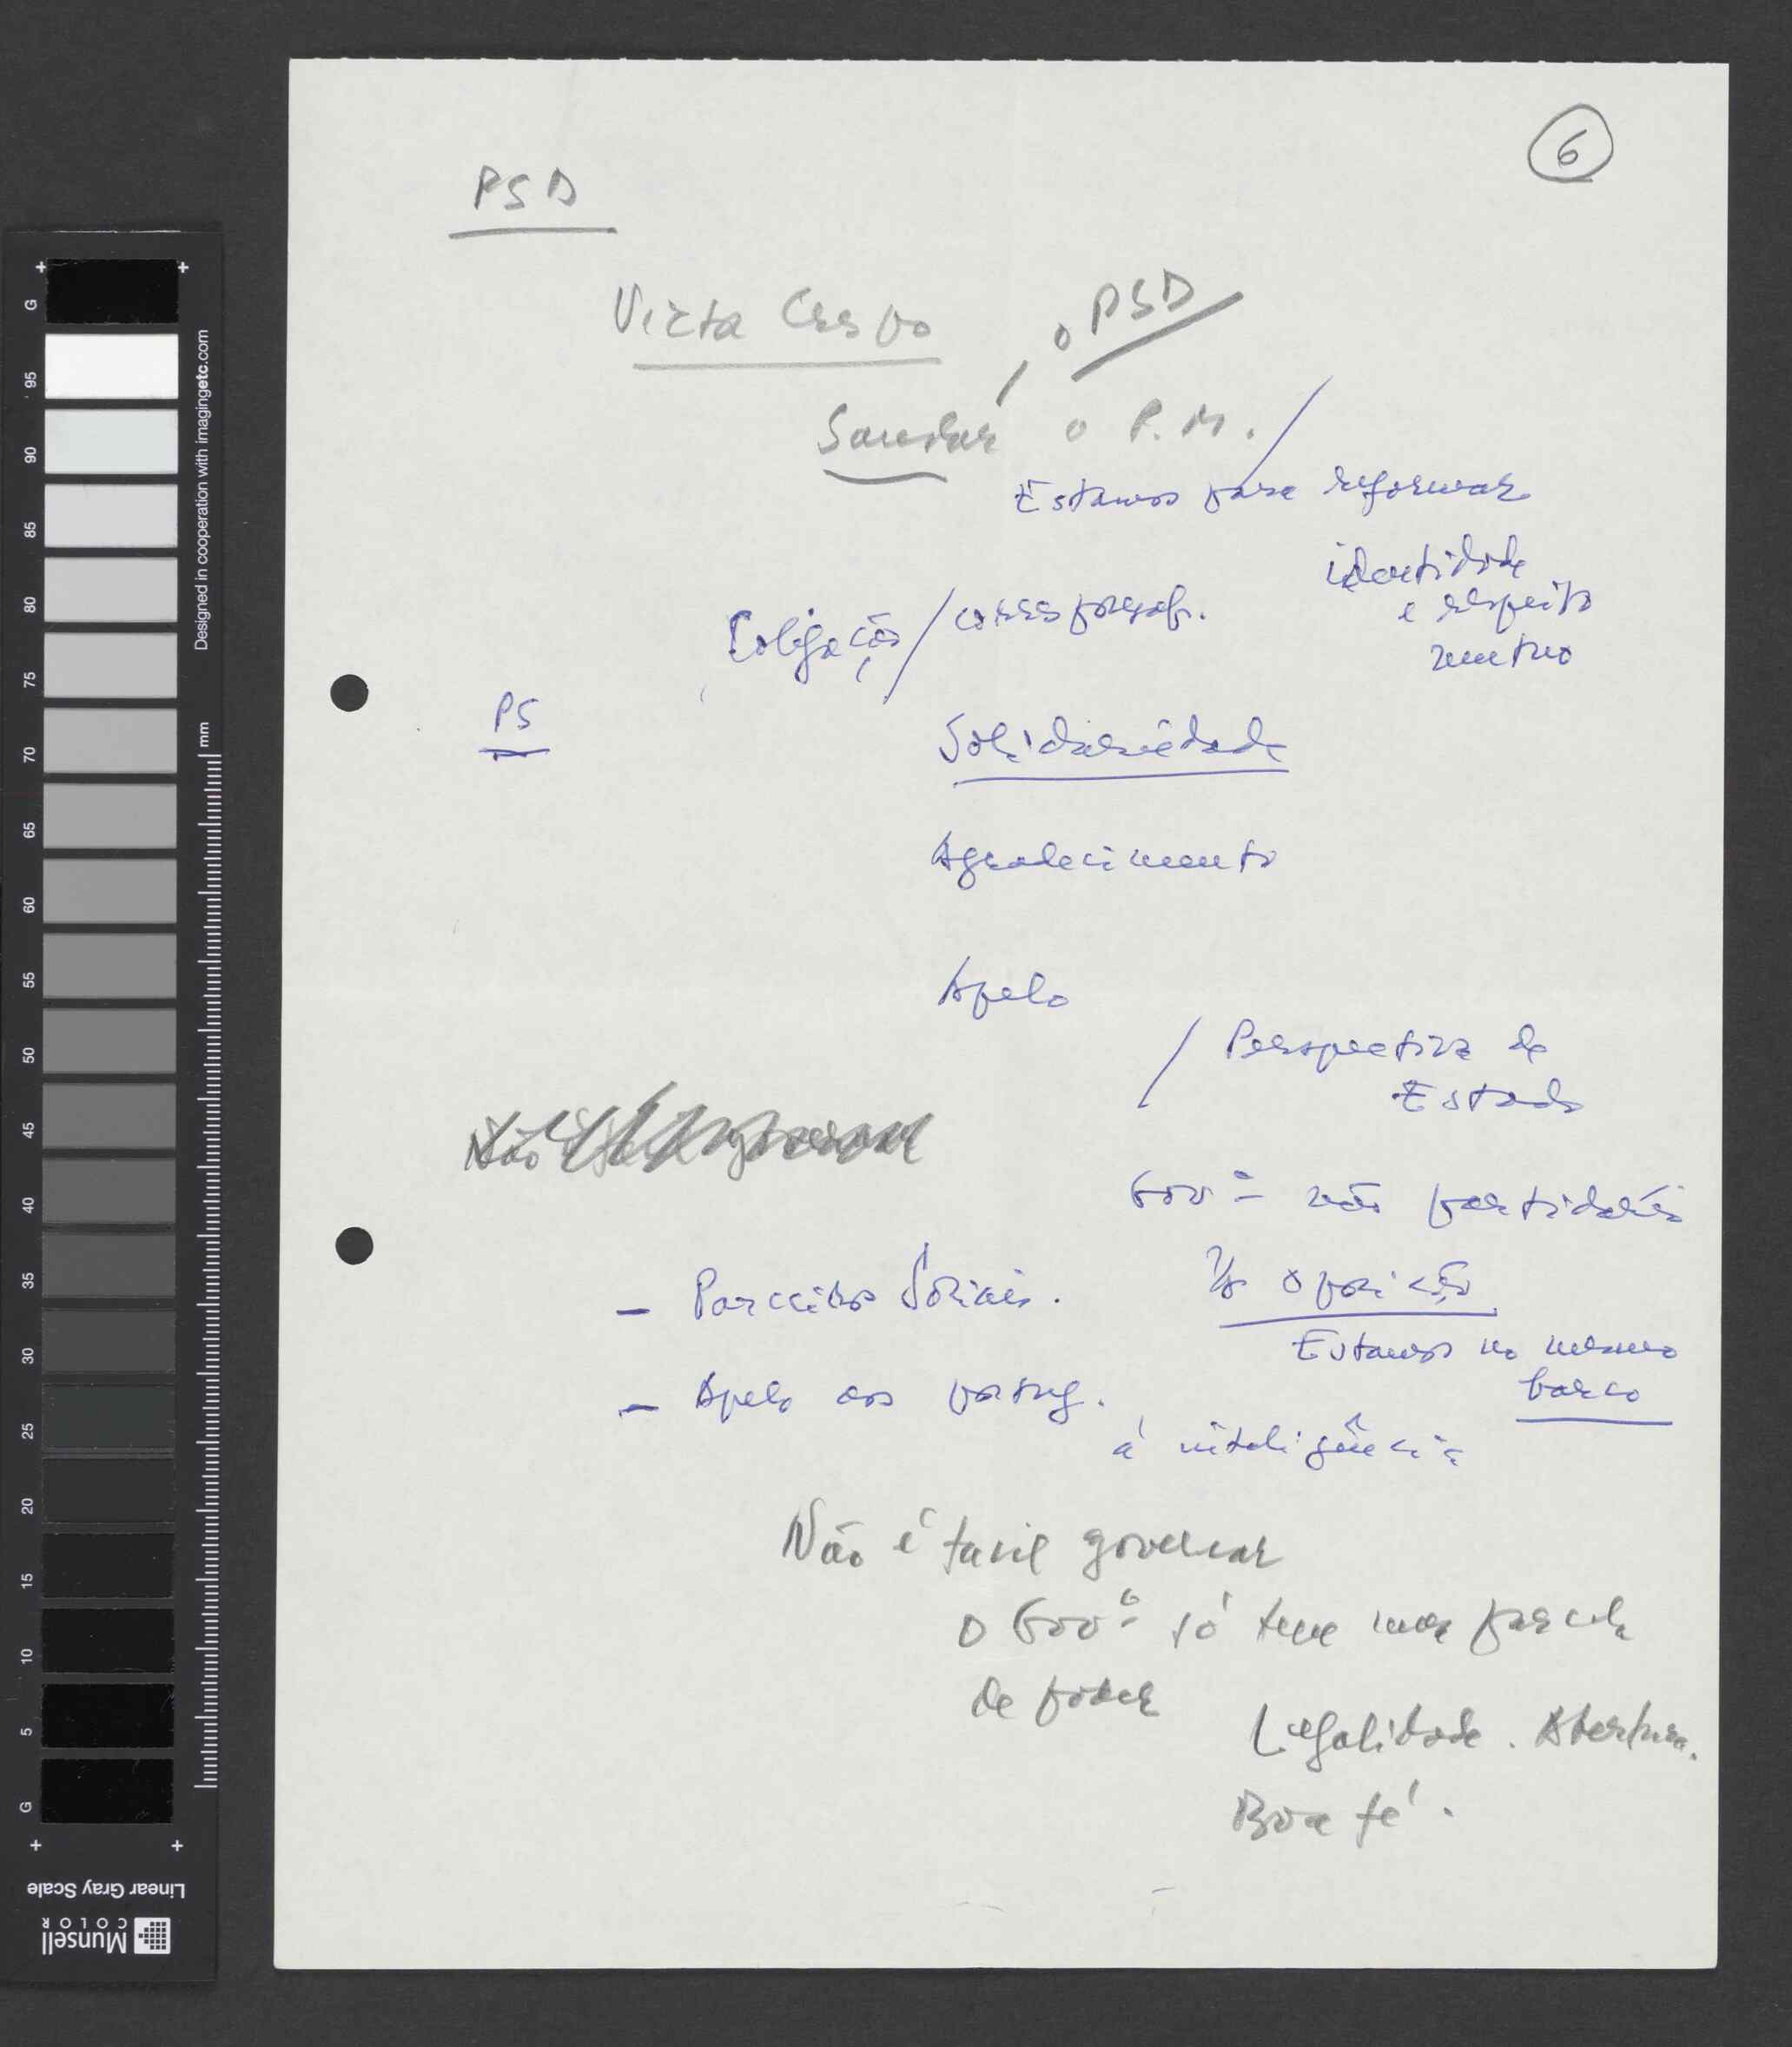 6
PSD
Victa Crespo
, o PSD
Saudar o P.M. /
Estamos para reformar
identidade
e respeito
mutuo
Coligação /
PS
Solidariedade
Agradecimento
Apelo
/ Perspectiva de
Estado
Não
Govº não partidário
Oposição
- Parceiros Sociais.
Estamos no mesmo
barco
- Apelo aos portug.
à inteligência
Não é facil governar
O Govº só tem uma parcela
de poder
Legalidade. Abertura.
Boa fé.
Designed in cooperation with imagingetc.com
mm
G
95
90
85
80
75
70
65
60
55
50
45
40
35
30
25
20
15
10
5
G
Linear Gray Scale
Munsell
COLOR